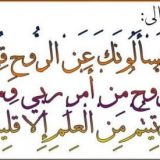 الى:
يسألونك عن الروح ق
روح من أمر ربي وم
يتم من العلم إلا قلي